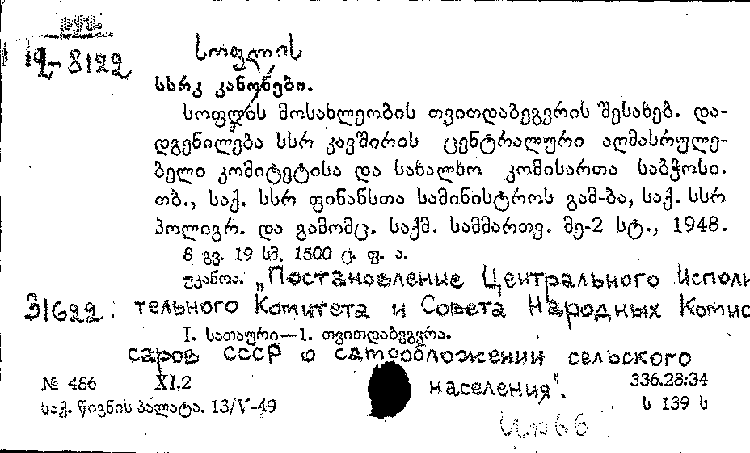 19-8122
სოფლის
სსრკ კანონები.
სოფლის მოსახლეობის თვითდაბეგვრის შესახებ. და-
დგენილება სსრ კავშირის ცენტრალური აღმასრულე-
ბელი კომიტეტისა და სახალხო კომისართა საბჭოსი.
თბ., საქ. სსრ ფინანსთა სამინისტროს გამ-ბა, საქ. სსრ
პოლიგრ. და გამომც. საქმ. სამმართვ. მე-2 სტ., 1948.
8 გვ. 19 სმ. 1500 ტ. ფ. ა.
უკანოა. „Постановление Центрального Исполн
31622. тельного Комитета и Совета Народных Комис
I. სათაური—1. თვითდაბეგვრა.
саров СССР о самообложении сельского
№ 486 XI.2 населения". 336.28:34
საქ. წიგნის პალატა. 13/V-49 ს 139 ს